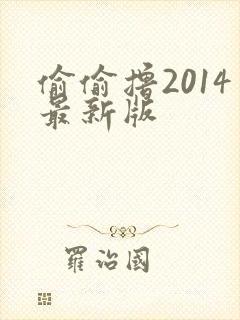 偷偷撸2014
最新版
羅治國